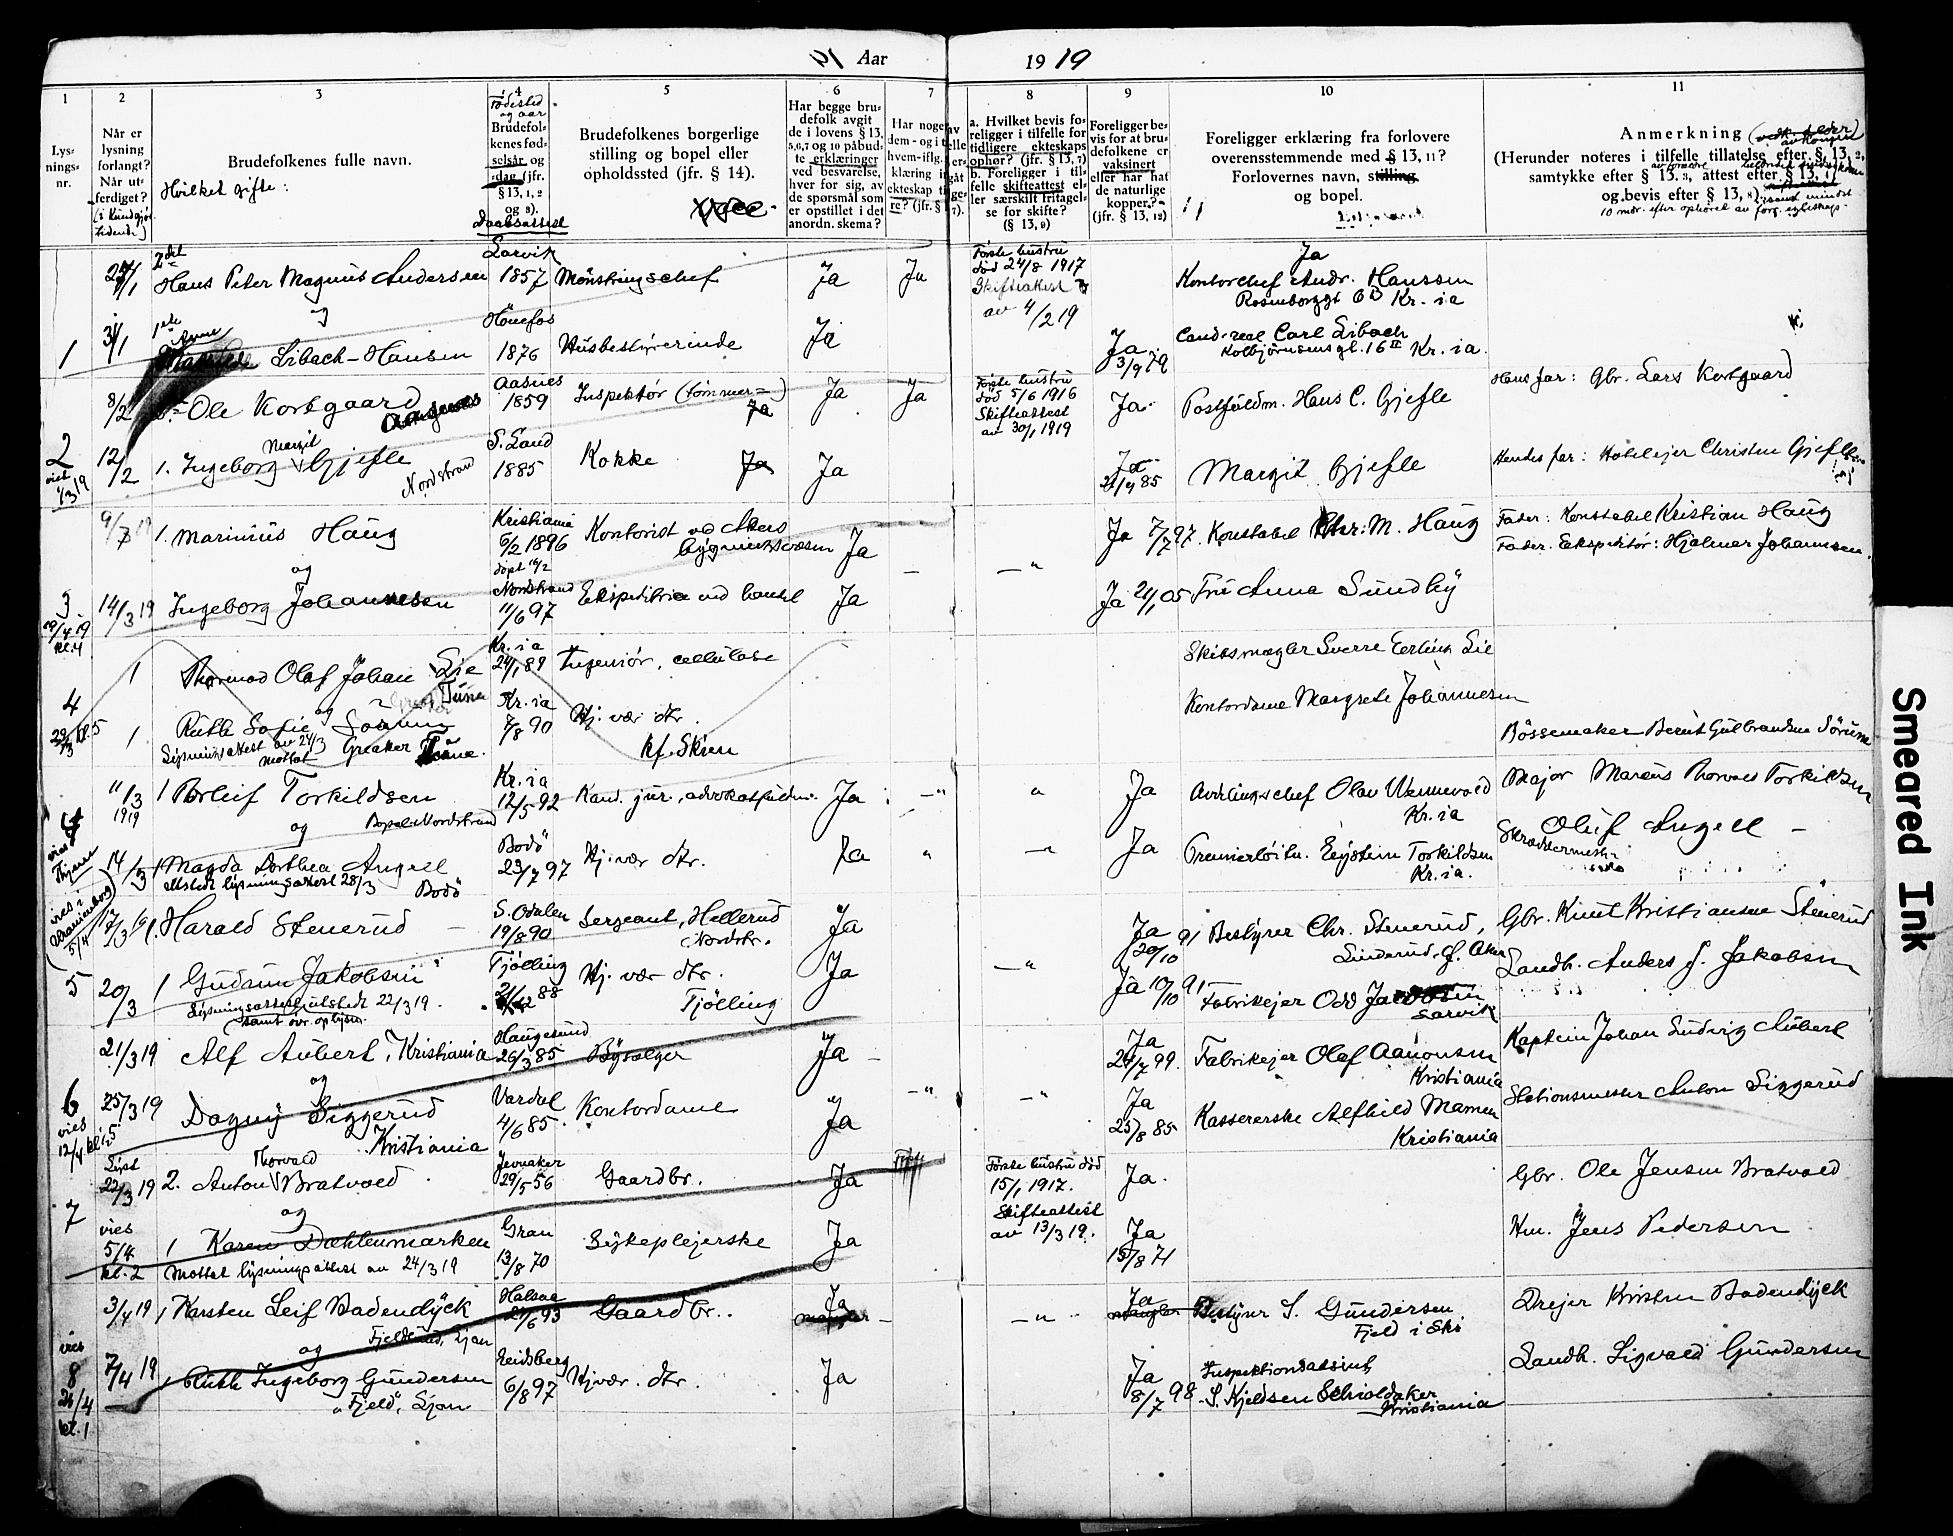 Aar 1919
1 2 3 4 5 6 7 8 9 10 11
Lys-
nings-
nr.
Når er
lysning
forlangt?
Når ut-
ferdiget?
Brudefolkenes fulle navn.
Hvilket gifte:
Fødested
og aar
Brudefol-
kenes fød-
selsår og
-dag (jfr.
§ 13, 1, 2
og 3).
Daabsattest
Brudefolkenes borgerlige
stilling og bopel eller
opholdssted (jfr. § 14).
Har begge bru-
defolk avgit
de i lovens § 13,
5,6,7 og 10 påbud-
te erklæringer
ved besvarelse,
hver for sig, av
de spørsmål som
er opstillet i det
anordn. skema?
a. Hvilket bevis fo-
religger i tilfelle for
tidligere ekteskaps
ophør? (jfr. § 13, 7)
b. Foreligger i til-
felle skifteattest el-
ler særskilt fritagel-
se for skifte?
(§ 13, 9)
Foreligger be-
vis for at bru-
defolkene er
vaksinert
eller har hat
de naturlige
kopper?
(jfr. § 13, 12)
Foreligger erklæring fra forlovere
overensstemmende med § 13, 11?
Forlovernes navn, stilling
og bopel.
Anmerkning
(Herunder noteres i tilfelle tillatelse efter § 13, 2,
samtykke efter § 13, 3, attest efter § 13, 4
og bevis efter § 13, 8).
10 mdr. efter ophöret av forr. egteskap.
2det
Hans Peter Magnus Andersen Larvik 1857 Mönstringschef Ja Ja Förste hustru död 24/8 1917 Skifteattest av 4/2 19 Ja Kontorchef Andr. Hanssen
Rosenborggt 6B Kr.ia
1 31/1 1ste Libach-Hansen Hönefos 1876 Husbestyrerinde Ja Ja 3/9 79 Cand. real Carl Libach
Kolbjörnsensgt. 16 II Kr.ia.
8/2 Ole Kortgaard Aasnes 1859 Inspektör (tömmer=) Ja Ja Förste hustru död 5/6 1916 Skifteattest av 30/1 1919 Ja Postfuldm. Hans C. Gjefle Hans far: Gbr. Lars Kortgaard
2 viet 1/3 19 12/2 1. Ingeborg Margit Gjefle Nordstrand S. Land 1885 Kokke Ja Ja Ja 85 Margit Gjefle Hendes far: Hoteleier Christen Gjefle
1. Marinius Haug Kristiania 6/2 1896 Kontorist ved Akers bygningsvæsen Ja Ja 7/7 97. Konstabel Chr. M. Haug Fader: Konstabel Kristian Haug
og Fader. Ekspeditör: Hjalmar Johannsen.
3. kl. 4 14/3 19 Ingeborg Johannesen Nordstrand 11/6 97 Ekspeditrice ved handel Ja Ja 21/1 05 Fru Anna Sundby
1 Thormod Olaf Johan Lie Tune Kr.ia 24/1 89 Ingeniör, cellulose Skibsmægler Sverre Erling Lie
4 kl. 5 og
1 Ruth Sofie Sörum Kr.ia 7/8 90 Hj. vær. dtr. Kontordame Margrete Johannesen
Lysningsattest av 24/3 mottat Greaker Tune. kf. Skien Bössemaker Bernt Gulbrandsen Sörum
11/3 1919 1 Torleif Torkildsen Kr.ia 12/5 92 Kand. jur., advokatfuldm. Ja Ja Avdelingschef Olav Wennevold
Kr.ia Major Marius Thorvald Torkildsen
og Bopæl: Nordstrand
14/3 1 Magda Dorthea Angell Bodö 23/7 97 Hj. vær. dtr. Ja Ja Premierlöitn. Eystein Torkildsen
Kr.ia. Skræddermester Oluf Angell
utstedt lysningsattest 28/3 Bodö
17/3 19 1. Harald Stenerud S. Odalen 19/8 90 Sergeant, Hellerud Nordstr. Ja Ja 20/10 91 Bestyrer Chr. Stenerud, Gbr. Knut Kristiansen Stenerud
5 20/3 1 Gudrun Jakobsen Tjölling 88 Hj. vær. dtr. Tjölling Ja Ja 10/10 91 Fabrikejer Odd Jacobsen
Larvik Landh. Anders J. Jakobsen
Lysningsattest utstedt 22/3 19.
samt ovr. oplysn.
21/3 19 Alf Aubert, Kristiania Haugesund 26/3 85 Byselger Ja Ja 24/7 99. Fabrikejer Olaf Aanonsen
Kristiania Kaptein Johan Ludvig Aubert
og
6 vies 12/4 kl. 5 25/3 19 Dagny Siggerud Kristiania Vardal 4/6 85. Kontordame Ja Ja 25/8 85 Kassererske Alfhild Mamen
Kristiania Stationsmester Anton Siggerud
Lyst 22/3 19 2. Anton Thorvald Bratvold Jevnaker 29/5 56 Gaardbr. Ja Förste hustru död 15/1 1917. Skifteattest av 13/3 19. Ja. Gbr. Ole Jensen Bratvold
7 vies 5/4 kl. 2 og
1 Karen Dæhlenmarken Gran 13/8 70 Sykeplejerske Ja Ja 15/8 71 Hm. Jens Pedersen
Mottat lysningsattest av 24/3 19
3/4 19 1 Karsten Leif Badendyck Halsaa 27/6 93 Gaardbr. Ja Ja Bestyrer S. Gundersen
Fjeld i Ski Drejer Kristen Badendyck
og Ljan
vies 8 kl. 1 7/4 19 1 Ruth Ingeborg Gundersen Eidsberg 6/8 97 Hj. vær. dtr. Ja Ja 8/7 98 Inspektionsassist.
S. Kjeldsen Schioldaker
Kristiania Landh. Sigvald Gundersen
"Fjeld", Ljan
Smeared Ink